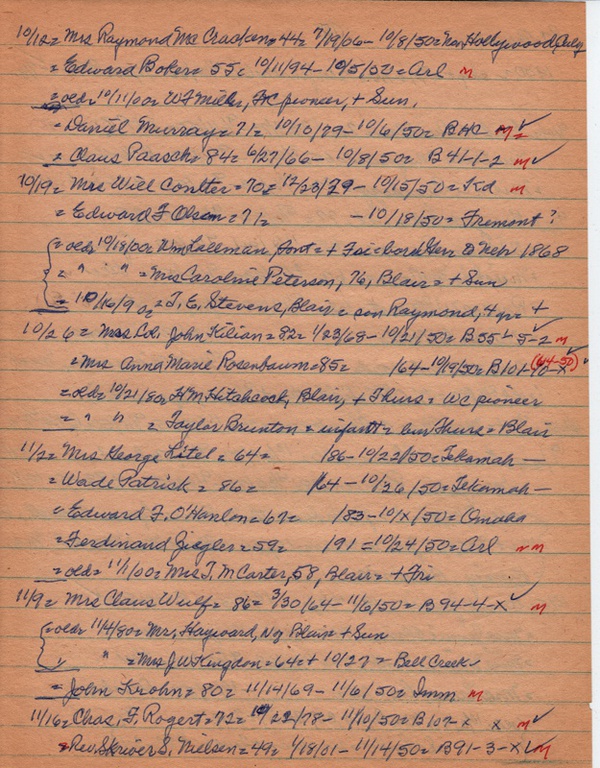 10/12= Mrs Raymond McCracken= 44= 7/19/06- 10/8/50= Nor. Hollywood, Calif
= Edward Boker= 55= 10/11/94- 10/5/50= Arl M
= old= 10/11/00= W F Miller, pioneer, + Sun.
= Daniel Murray= 71= 10/10/79- 10/6/50= B M= ✓
= Claus Paasch= 84= 6/27/66- 10/8/50= B 41-1-2 M ✓
10/19= Mrs Will Coulter= 70= 12/23/79- 10/15/50= Kd M
= Edward F Olsen= 71= - 10/18/50= Fremont?
= old= 10/18/00= Wm + Fri= born Ger to Nebr 1868
= " " = Mrs Caroline Peterson, 76, Blair= + Sun
= 10/16/90= T. E. Stevens, Blair= son Raymond, 4 yr= +
10/26= Mrs Co. John Kilian= 82= 1/23/68- 10/21/50= B55-5-2 M
= Mrs Anna Marie Rosenbaum= 85= /64- 10/19/50= B101-10-X (64-50) ✓
= old= 10/21/80= H M Hitchcock, Blair, + Thurs= WC pioneer
= " " = Taylor Brunton= infant= bur Thurs= Blair
11/2= Mrs George Litel= 64= /86- 10/22/50= Tekamah -
= Wade Patrick= 86= /64- 10/26/50= Tekamah -
= Edward F. O'Hanlon= 67= /83- 10/X/50= Omaha
= Ferdinand Ziegler= 59= /91= 10/24/50= Arl M
= old= 11/1/00= Mrs T. M Carter, 58, Blair= + Fri
11/9= Mrs Claus Wulf= 86= 3/30/64- 11/6/50= B 94-4-X ✓ M
= old= 11/4/80= Mr, Hayward, N of Blair + Sun
" = Mrs J W Kingdon= 64= + 10/27= Bell Creek
= John Krohn= 80= 11/14/69- 11/6/50= Imm M
11/16= Chas. F. Rogert= 72= 10/22/78- 11/10/50= B107-x x M ✓
= Rev. Skriver S. Nielsen= 49= 1/18/01- 11/14/50= B91-3-X ✓ M